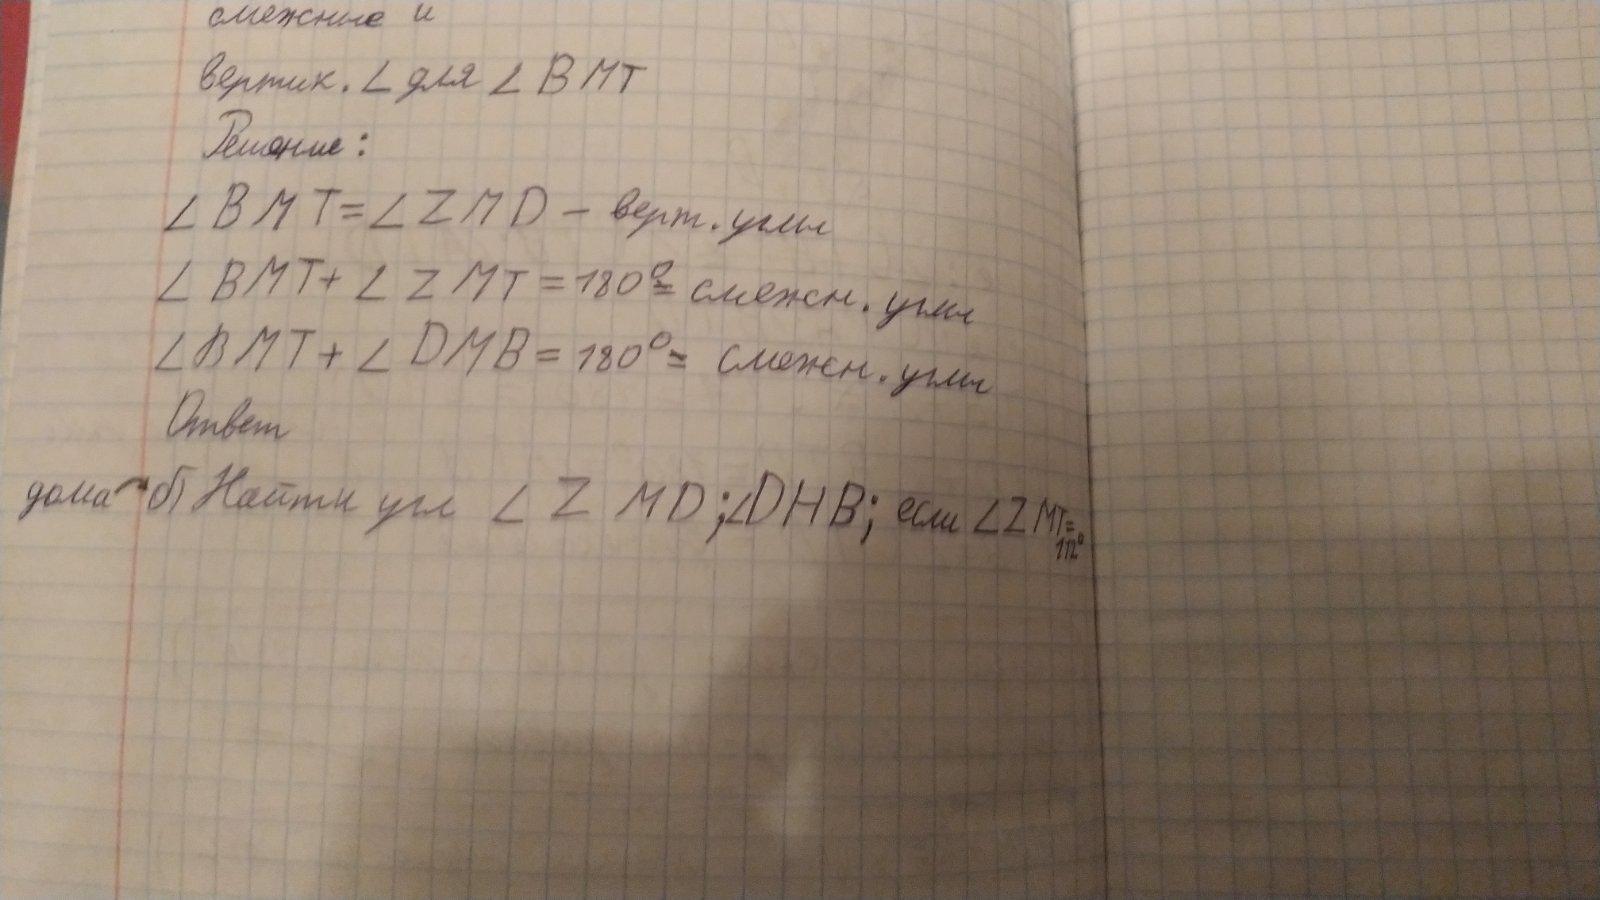 смежные и
вертик. ∠ для ∠ BMT
Решение:
∠ BMT = ∠ ZMD – верт. углы
∠ BMT + ∠ ZMT = 180° = смежн. углы
∠ BMT + ∠ DMB = 180° = смежн. углы
Ответ
дома б) Найти угл ∠ ZMD; ∠DHB; если ∠ZMT=
112°